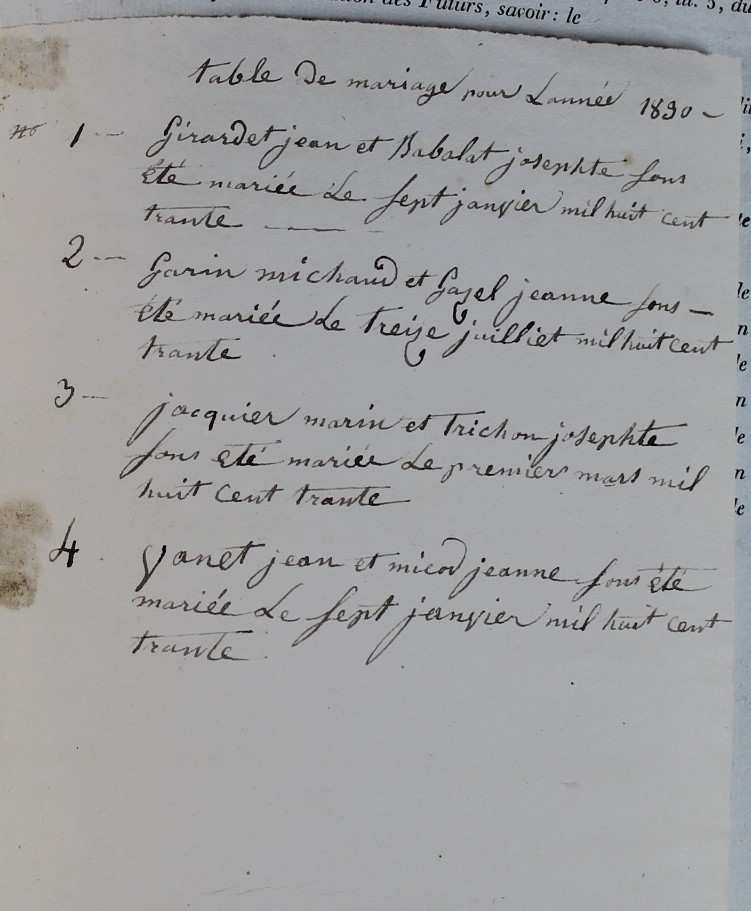 des Futurs, savoir: le
table de mariage pour Lannée 1830 –
no 1 — Girardet jean et Babalat josephte sons
été mariée Le sept janvier mil huit cent
trante
2 — Garin michaud et Gazel jeanne sons —
été mariée Le treize juilliet mil huit cent
trante
3 — jacquier marin et trichon josephte
sons été mariée Le premier mars mil
huit cent trante
4 vanet jean et micod jeanne sons été
mariée Le sept janvier mil huit cent
trante